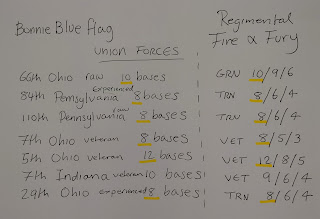 Bonnie Blue flag
Regimental
Fire & Fury
UNION FORCES
66th Ohio raw 10 bases
GRN 10/9/6
experienced
84th Pennsylvania 8 bases
TRN 8/6/4
raw
110th Pennsylvania 8 bases
TRN 8/6/4
7th Ohio veteran 8 bases
VET 8/5/3
5th Ohio veteran 12 bases
VET 12/8/5
7th Indiana veteran 10 bases
VET 9/6/4
29th Ohio experienced 8 bases
TRN 8/6/4